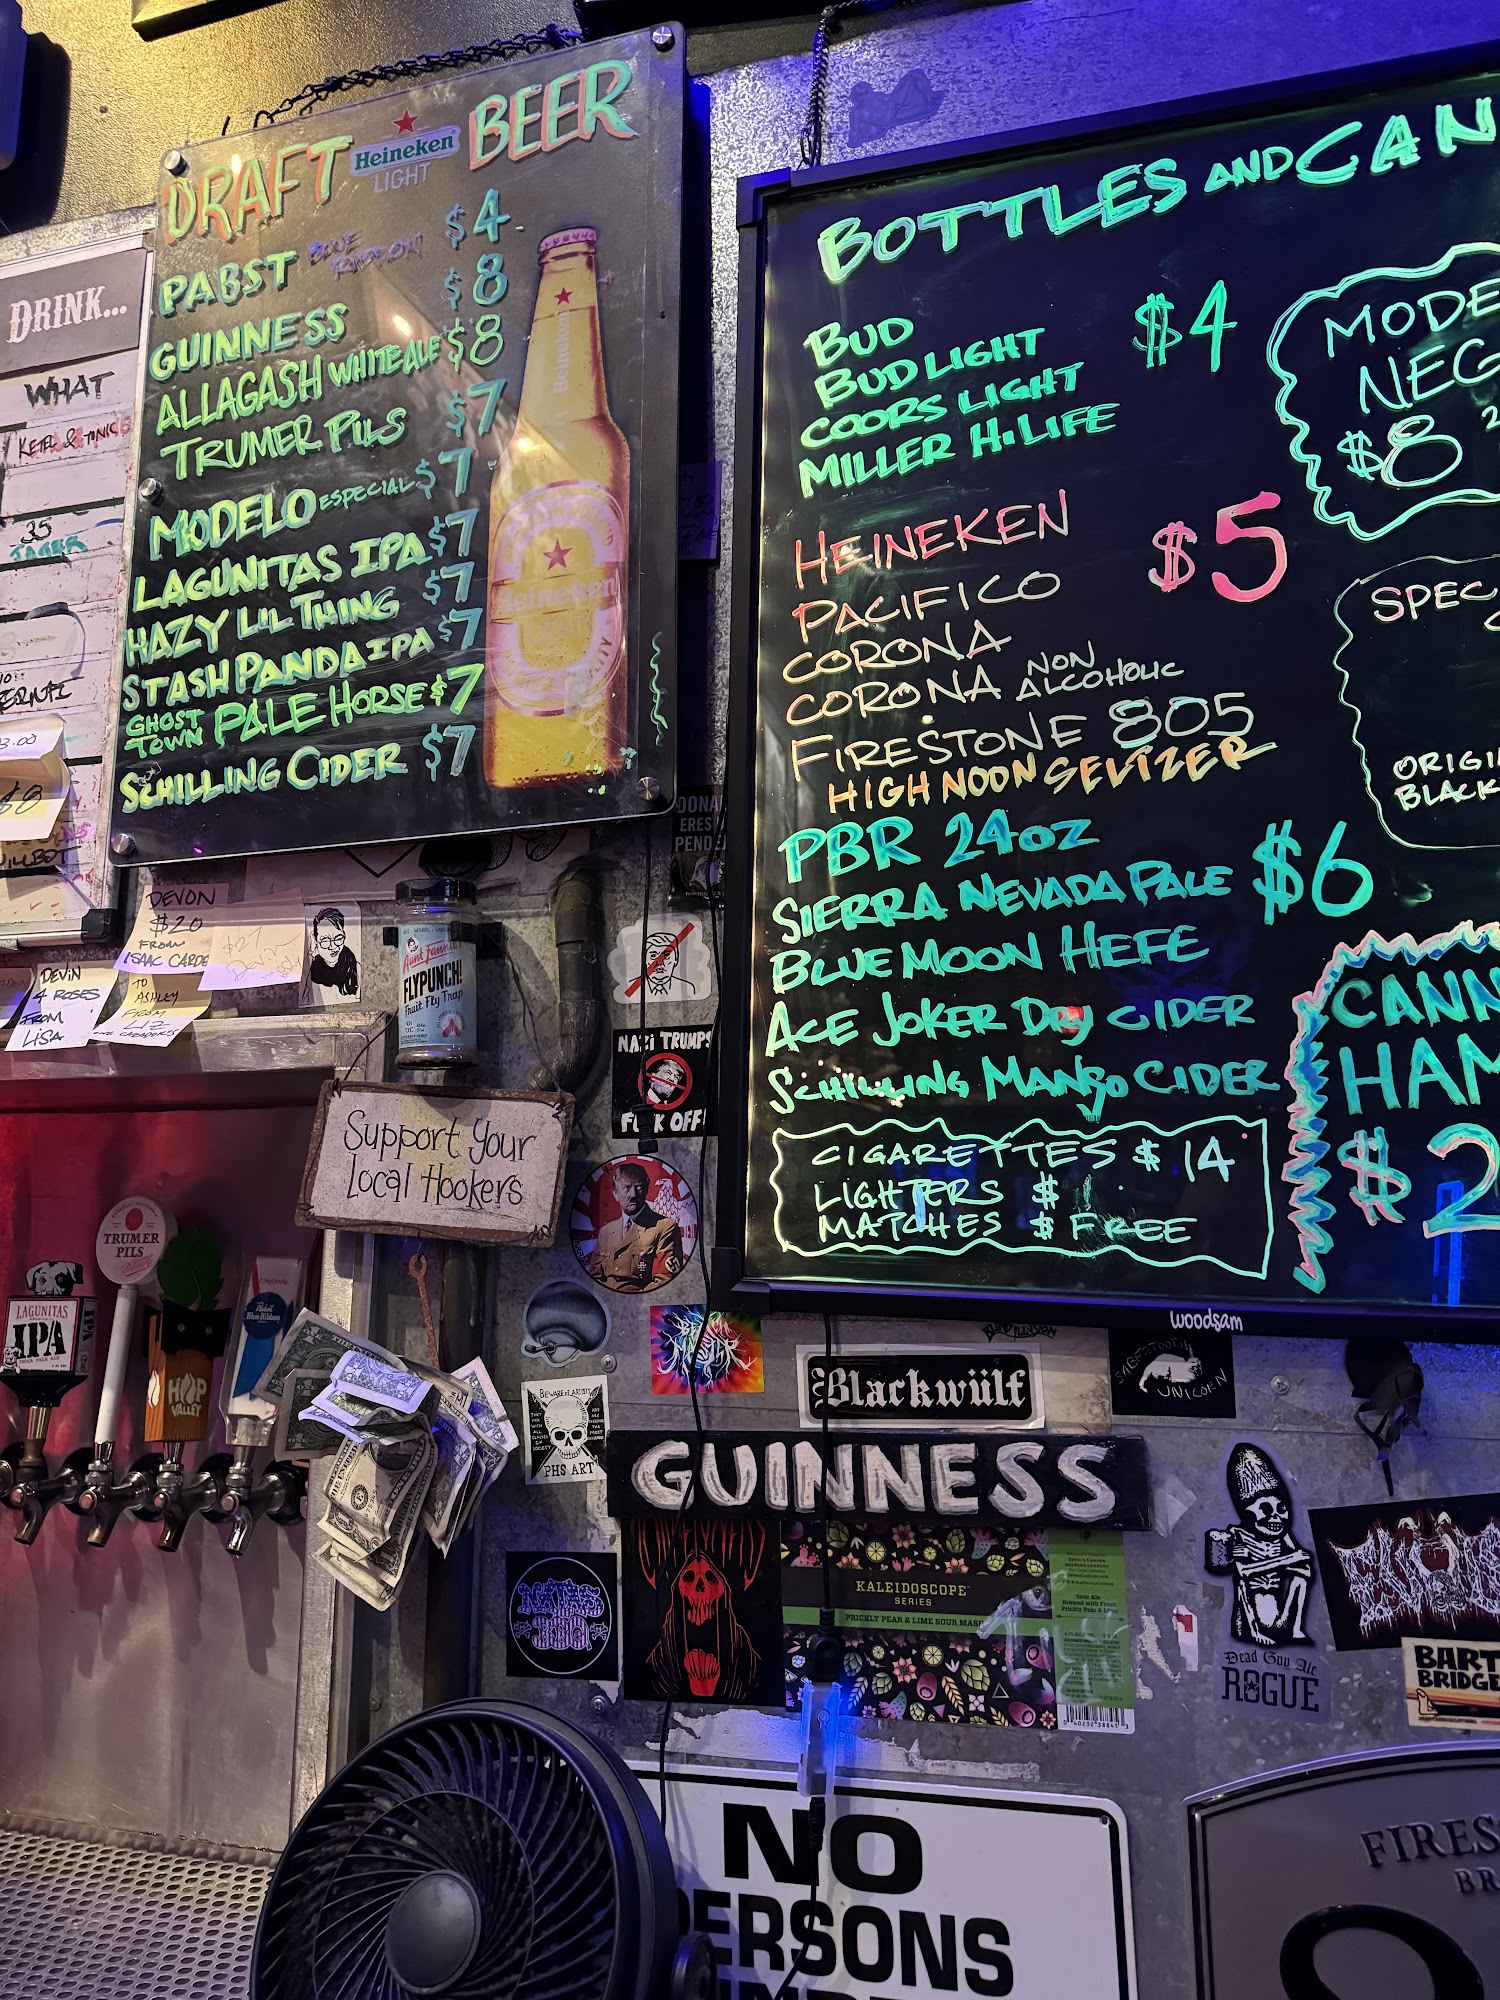 DRAFT BEER
Heineken
LIGHT
PABST BLUE RIBBON $4
GUINNESS $8
ALLAGASH WHITE ALE $8
TRUMER PILS $7
MODELO ESPECIAL $7
LAGUNITAS IPA $7
HAZY LIL THING $7
STASH PANDA IPA $7
GHOST TOWN PALE HORSE $7
SCHILLING CIDER $7
Heineken
DRINK...
WHAT
KETEL & TONIC
35
JAGER
3.00
$8
DEVON
$20
FROM
ISAAC CARDE
$21
DEVIN
4 ROSES
FROM
LISA
TO
ASHLEY
FROM
LIZ
BOTTLES AND CAN
BUD
BUD LIGHT
COORS LIGHT
MILLER Hi LIFE
$4
HEINEKEN
PACIFICO
CORONA
CORONA NON ALCOHOLIC
FIRESTONE 805
HIGH NOON SELTZER
$5
PBR 24oz
SIERRA NEVADA PALE
BLUE MOON HEFE
ACE JOKER DRY CIDER
SCHILLING MANGO CIDER
$6
CIGARETTES $14
LIGHTERS $1
MATCHES $ FREE
MODE
NEG
$8
SPEC
ORIGI
BLACK
CANN
HAM
$2
woodsam
DONA
ERES
PENDE
Aunt Fannie's
FLYPUNCH!
Fruit Fly Trap
NAZI TRUMPS
FU K OFF!
Support Your
Local Hookers
TRUMER
PILS
LAGUNITAS
IPA
INDIA PALE ALE
HOP
VALLEY
Pabst
Blue Ribbon
BEWARE of ARTISTS
PHS ART
Blackwülf
SABERTOOTH
UNICORN
GUINNESS
KALEIDOSCOPE
SERIES
PRICKLY PEAR & LIME SOUR MASH
Dead Guy Ale
ROGUE
BART
BRIDGE
NO
PERSONS
FIRES
BR